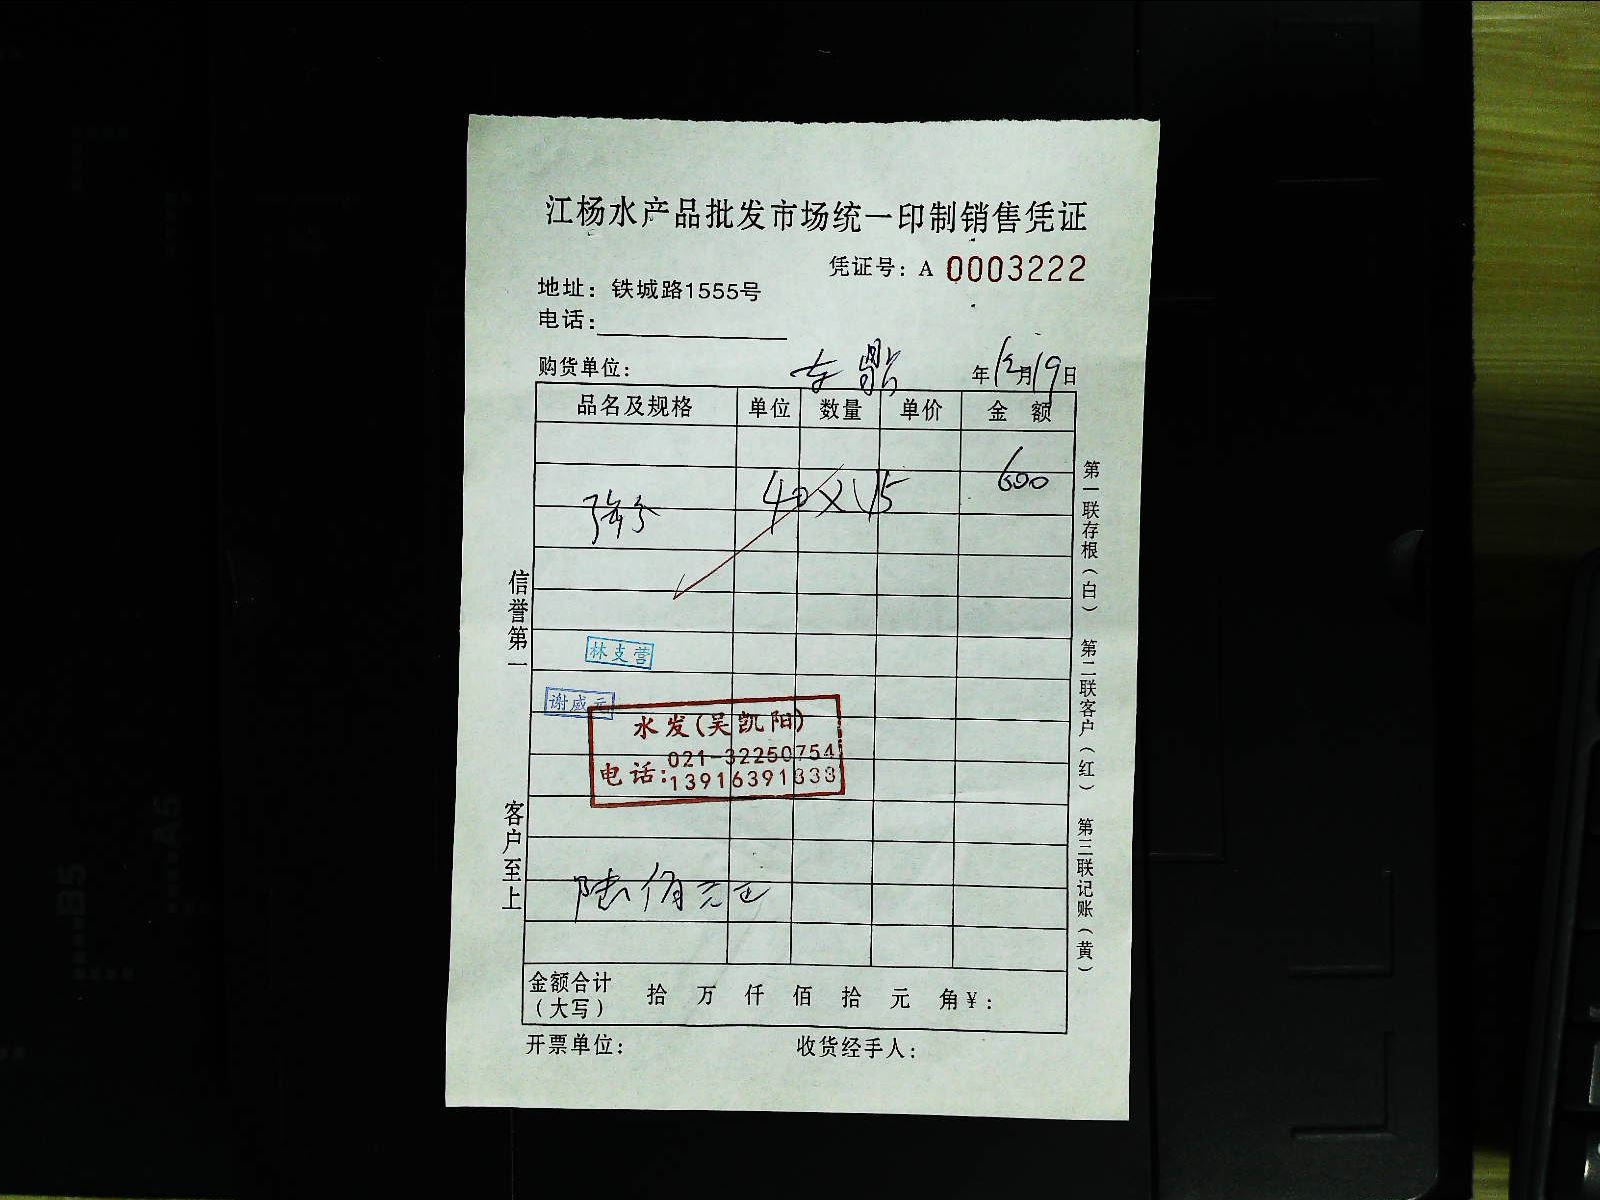 江杨水产品批发市场统一印制销售凭证
凭证号：A 0003222
地址：铁城路1555号
电话：
购货单位：
年12月19日
品名及规格 单位 数量 单价 金 额
40×15 600
林支营
谢威元
水发(吴凯阳)
电话:021-32250754
13916391333
陆佰元正
金额合计（大写） 拾 万 仟 佰 拾 元 角￥：
开票单位： 收货经手人：
信誉第一 客户至上
第一联存根（白） 第二联客户（红） 第三联记账（黄）
B5
A5